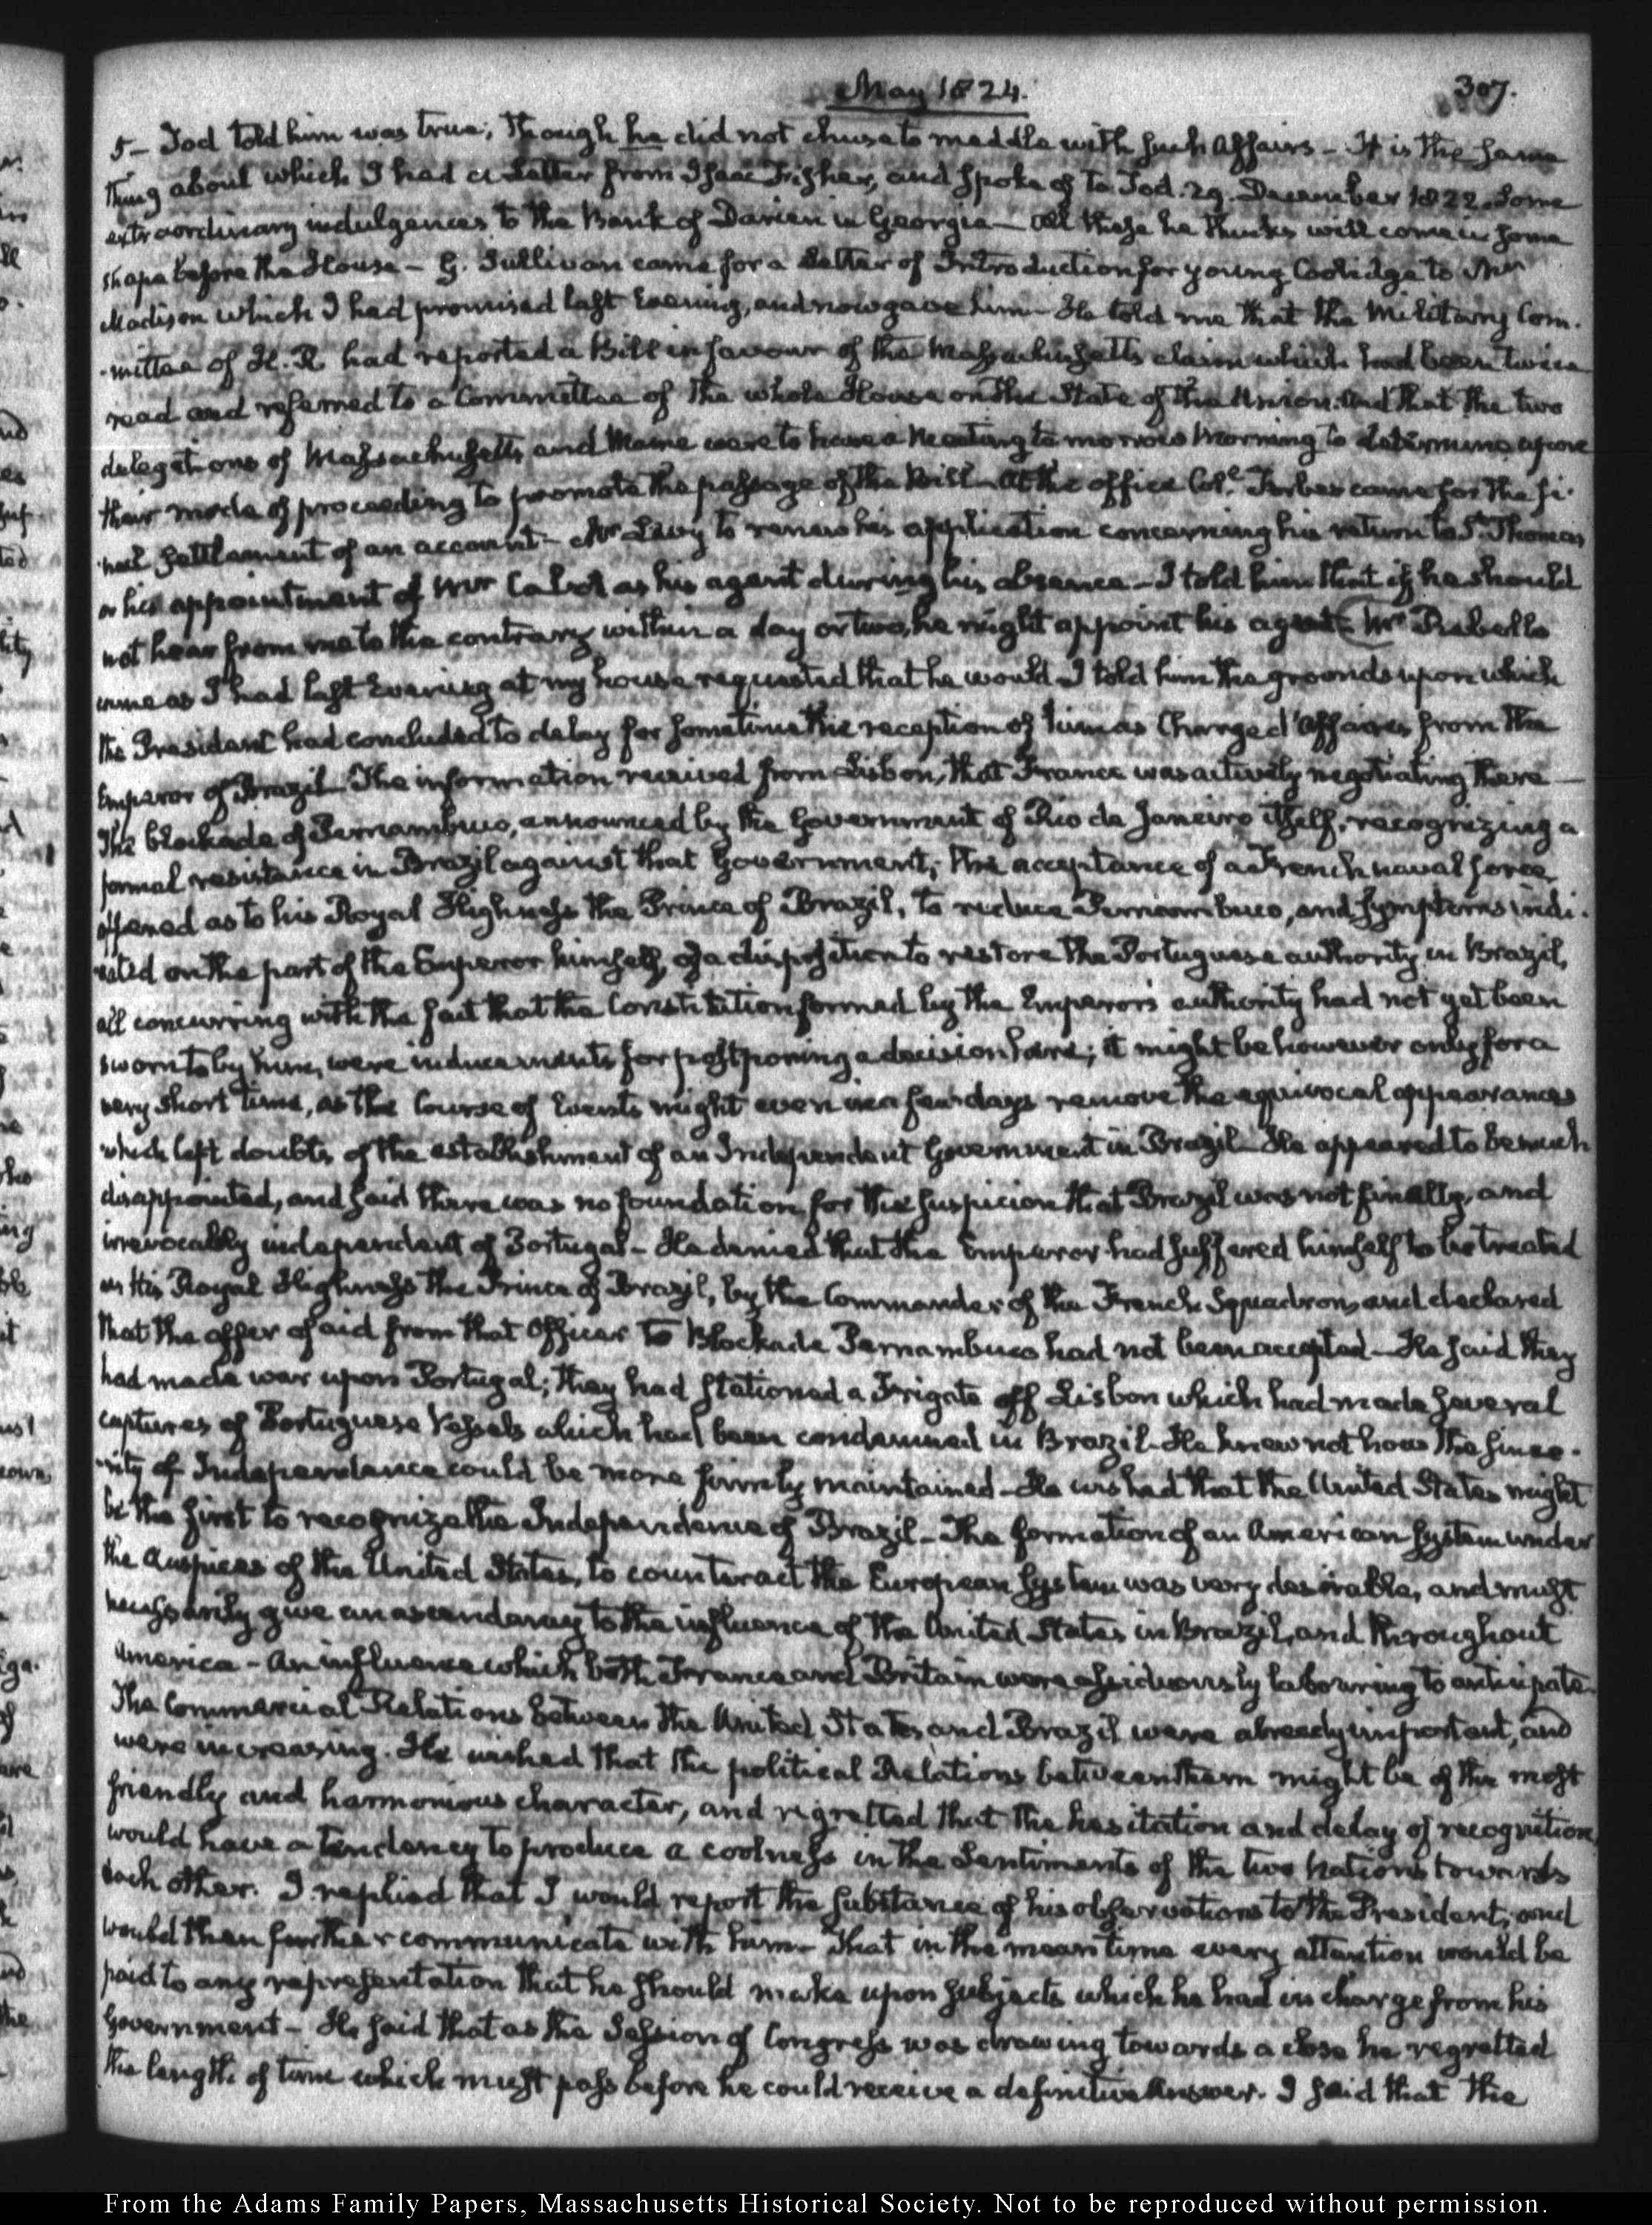 May 1824.
307.
5 – Tod told him was true; though he did not chuse to meddle with such Affairs – It is the same
thing about which I had a Letter from Isaac Fisher, and spoke of to Tod. 29. December 1822. Some
extraordinary indulgences to the Bank of Darien in Georgia – all these he thinks will come in some
shape before the House – G. Sullivan came for a Letter of Introduction for young Coolidge to Mr
Madison which I had promised last Evening, and now gave him – He told me that the Military Com-
-mittee of H. R. had reported a Bill in favour of the Massachusetts claim which had been twice
read and referred to a Committee of the whole House on the State of the Union. And that the two
delegations of Massachusetts and Maine were to have a Meeting to morrow Morning to determine upon
their mode of proceeding to promote the passage of the Bill – At the office Coll. Forbes came for the fi-
-nal settlement of an account – Mr Levy to renew his application concerning his return to St. Thomas
or his appointment of Mr Cabot as his agent during his absence – I told him that if he should
not hear from me to the contrary within a day or two, he might appoint his agent (Mr Rebello
came as I had last Evening at my house requested that he would – I told him the grounds upon which
the President had concluded to delay for sometime the reception of him as Chargé d'Affaires from the
Emperor of Brazil – The information received from Lisbon, that France was actively negotiating there –
The blockade of Pernambuco, announced by the Government of Rio de Janeiro itself, recognizing a
formal resistance in Brazil against that Government; the acceptance of a French naval force
offered as to his Royal Highness the Prince of Brazil, to reduce Pernambuco, and symptoms indi-
cated on the part of the Emperor himself, of a disposition to restore the Portuguese authority in Brazil,
all concurring with the fact that the Constitution formed by the Emperor's authority had not yet been
sworn to by him, were inducements for postponing a decision here; it might be however only for a
very short time, as the Course of Events might even in a few days remove the equivocal appearances
which left doubts of the establishment of an Independent Government in Brazil – He appeared to be much
disappointed, and said there was no foundation for the suspicion that Brazil was not finally, and
irrevocably independent of Portugal – He denied that the Emperor had suffered himself to be treated
as His Royal Highness the Prince of Brazil, by the Commander of the French Squadron, and declared
that the offer of aid from that Officer to Blockade Pernambuco had not been accepted – He said they
had made war upon Portugal; they had stationed a Frigate off Lisbon which had made several
captures of Portuguese Vessels which had been condemned in Brazil – He knew not how the since-
-rity of Independence could be more firmly maintained – He wished that the United States might
be the first to recognize the Independence of Brazil – The formation of an American System under
the Auspices of the United States, to counteract the European System was very desirable, and must
necessarily give an ascendancy to the influence of the United States in Brazil, and throughout
America – An influence which both France and Britain were assiduously labouring to anticipate.
The Commercial Relations between the United States and Brazil were already important, and
were increasing. He wished that the political Relations between them might be of the most
friendly and harmonious character, and regretted that the hesitation and delay of recognition,
would have a tendency to produce a coolness in the Sentiments of the two Nations towards
each other. I replied that I would report the substance of his observations to the President, and
would then further communicate with him – That in the mean time every attention would be
paid to any representation that he should make upon subjects which he had in charge from his
Government – He said that as the Session of Congress was drawing towards a close he regretted
the length of time which must pass before he could receive a definitive Answer. I said that the
From the Adams Family Papers, Massachusetts Historical Society. Not to be reproduced without permission.